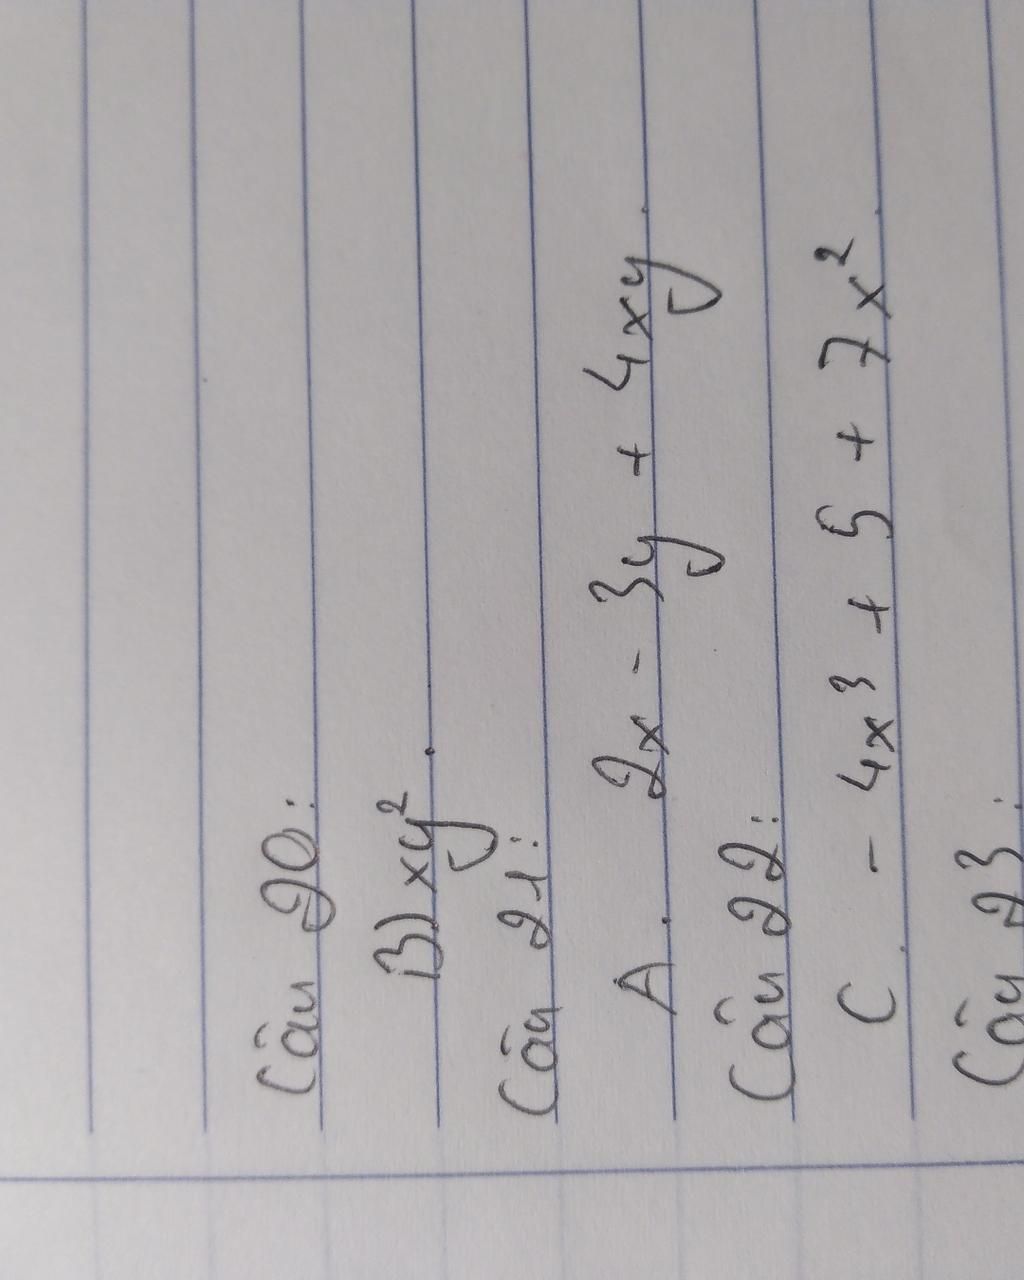 Câu 20:
B) xy²
Câu 21:
A. 2x - 3y + 4xy.
Câu 22:
C. - 4x³ + 5 + 7x².
Câu 23: